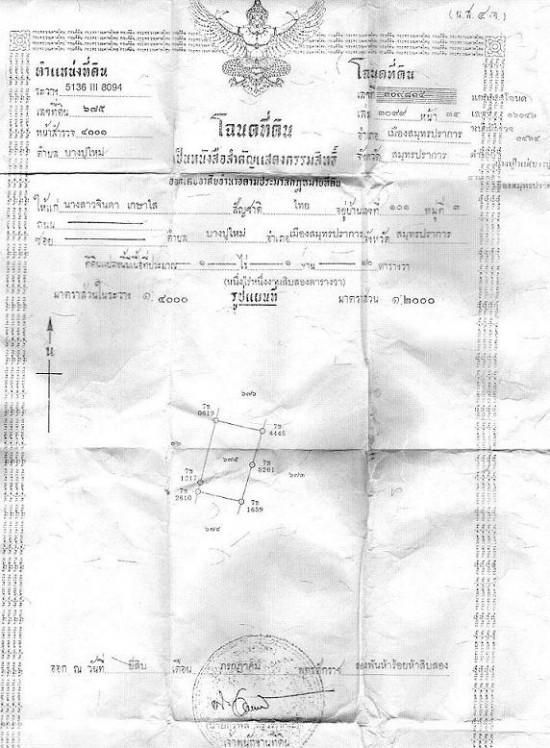 (น.ส. ๔ จ.)
ตำแหน่งที่ดิน
ระวาง 5136 III 8094
เลขที่ดิน ๖๗๕
หน้าสำรวจ ๔๐๐๐
ตำบล บางปูใหม่
โฉนดที่ดิน
เลขที่
เล่ม ๓๐๙๙ หน้า ๓๕
อำเภอ เมืองสมุทรปราการ
จังหวัด สมุทรปราการ
โฉนดที่ดิน
เป็นหนังสือสำคัญแสดงกรรมสิทธิ์
ออกโดยอาศัยอำนาจตามประมวลกฎหมายที่ดิน
ให้แก่ นางสาวจินดา เกษาใส สัญชาติ ไทย อยู่บ้านเลขที่ ๑๐๑ หมู่ที่ ๓
ถนน
ซอย ตำบล บางปูใหม่ อำเภอ เมืองสมุทรปราการ จังหวัด สมุทรปราการ
ที่ดินแปลงนี้มีเนื้อที่ประมาณ ๑ ไร่ ๑ งาน ๑๒ ตารางวา
(หนึ่งไร่หนึ่งงานสิบสองตารางวา)
มาตราส่วนในระวาง ๑:๔๐๐๐ รูปแผนที่ มาตราส่วน ๑:๒๐๐๐
น
๖๗๖
7ข
0619
7ข
4445
๖๗๕
7ข
8261
๖๗๓
7ข
1217
7ข
2610
7ข
1659
๖๗๔
ออก ณ วันที่ ยี่สิบ เดือน กรกฎาคม พุทธศักราช สองพันห้าร้อยห้าสิบสอง
เจ้าพนักงานที่ดิน